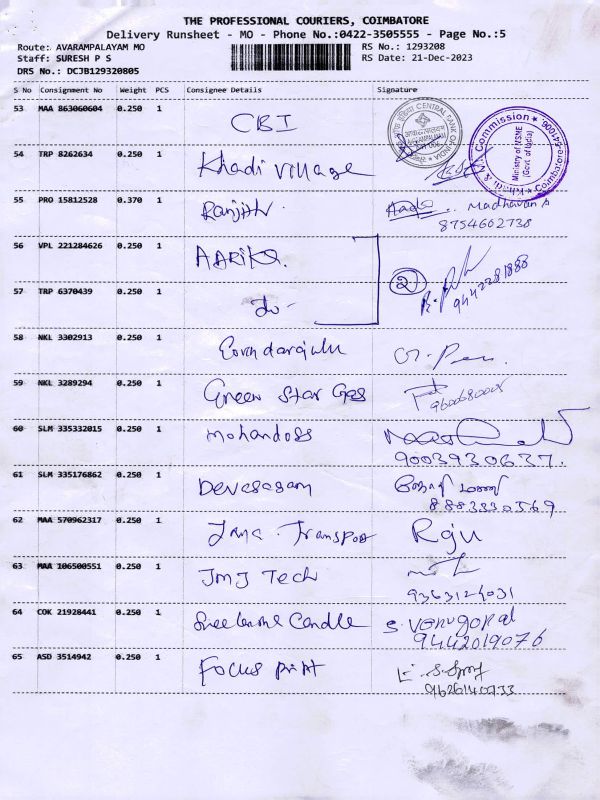 THE PROFESSIONAL COURIERS, COIMBATORE
Delivery Runsheet - MO - Phone No.:0422-3505555 - Page No.:5
Route: AVARAMPALAYAM MO RS No.: 1293208
Staff: SURESH P S RS Date: 21-Dec-2023
DRS No.: DCJB129320805
S No Consignment No Weight PCS Consignee Details Signature
53 MAA 863060604 0.250 1 CBI
CENTRAL BANK OF INDIA
Commission
Ministry of MSME
(Govt. of India)
Coimbatore-641006
54 TRP 8262634 0.250 1 Khadi village
55 PRO 15812528 0.370 1 Ranjith Madhavan A
8754602738
56 VPL 221284626 0.250 1 AARIKA
2
9442281888
57 TRP 6370439 0.250 1 do -
58 NKL 3302913 0.250 1 Govndarajulu
59 NKL 3289294 0.250 1 Green Star Gas
9600680008
60 SLM 335332015 0.250 1 Mohandoss
9003930637.
61 SLM 335176862 0.250 1 Devasagam
8883330569
62 MAA 570962317 0.250 1 Transport Raju
63 MAA 106500551 0.250 1 JMJ Tech
9363124031
64 COK 21928441 0.250 1 Candle S. Venugopal
9442019076
65 ASD 3514942 0.250 1 Focus print
9626140733